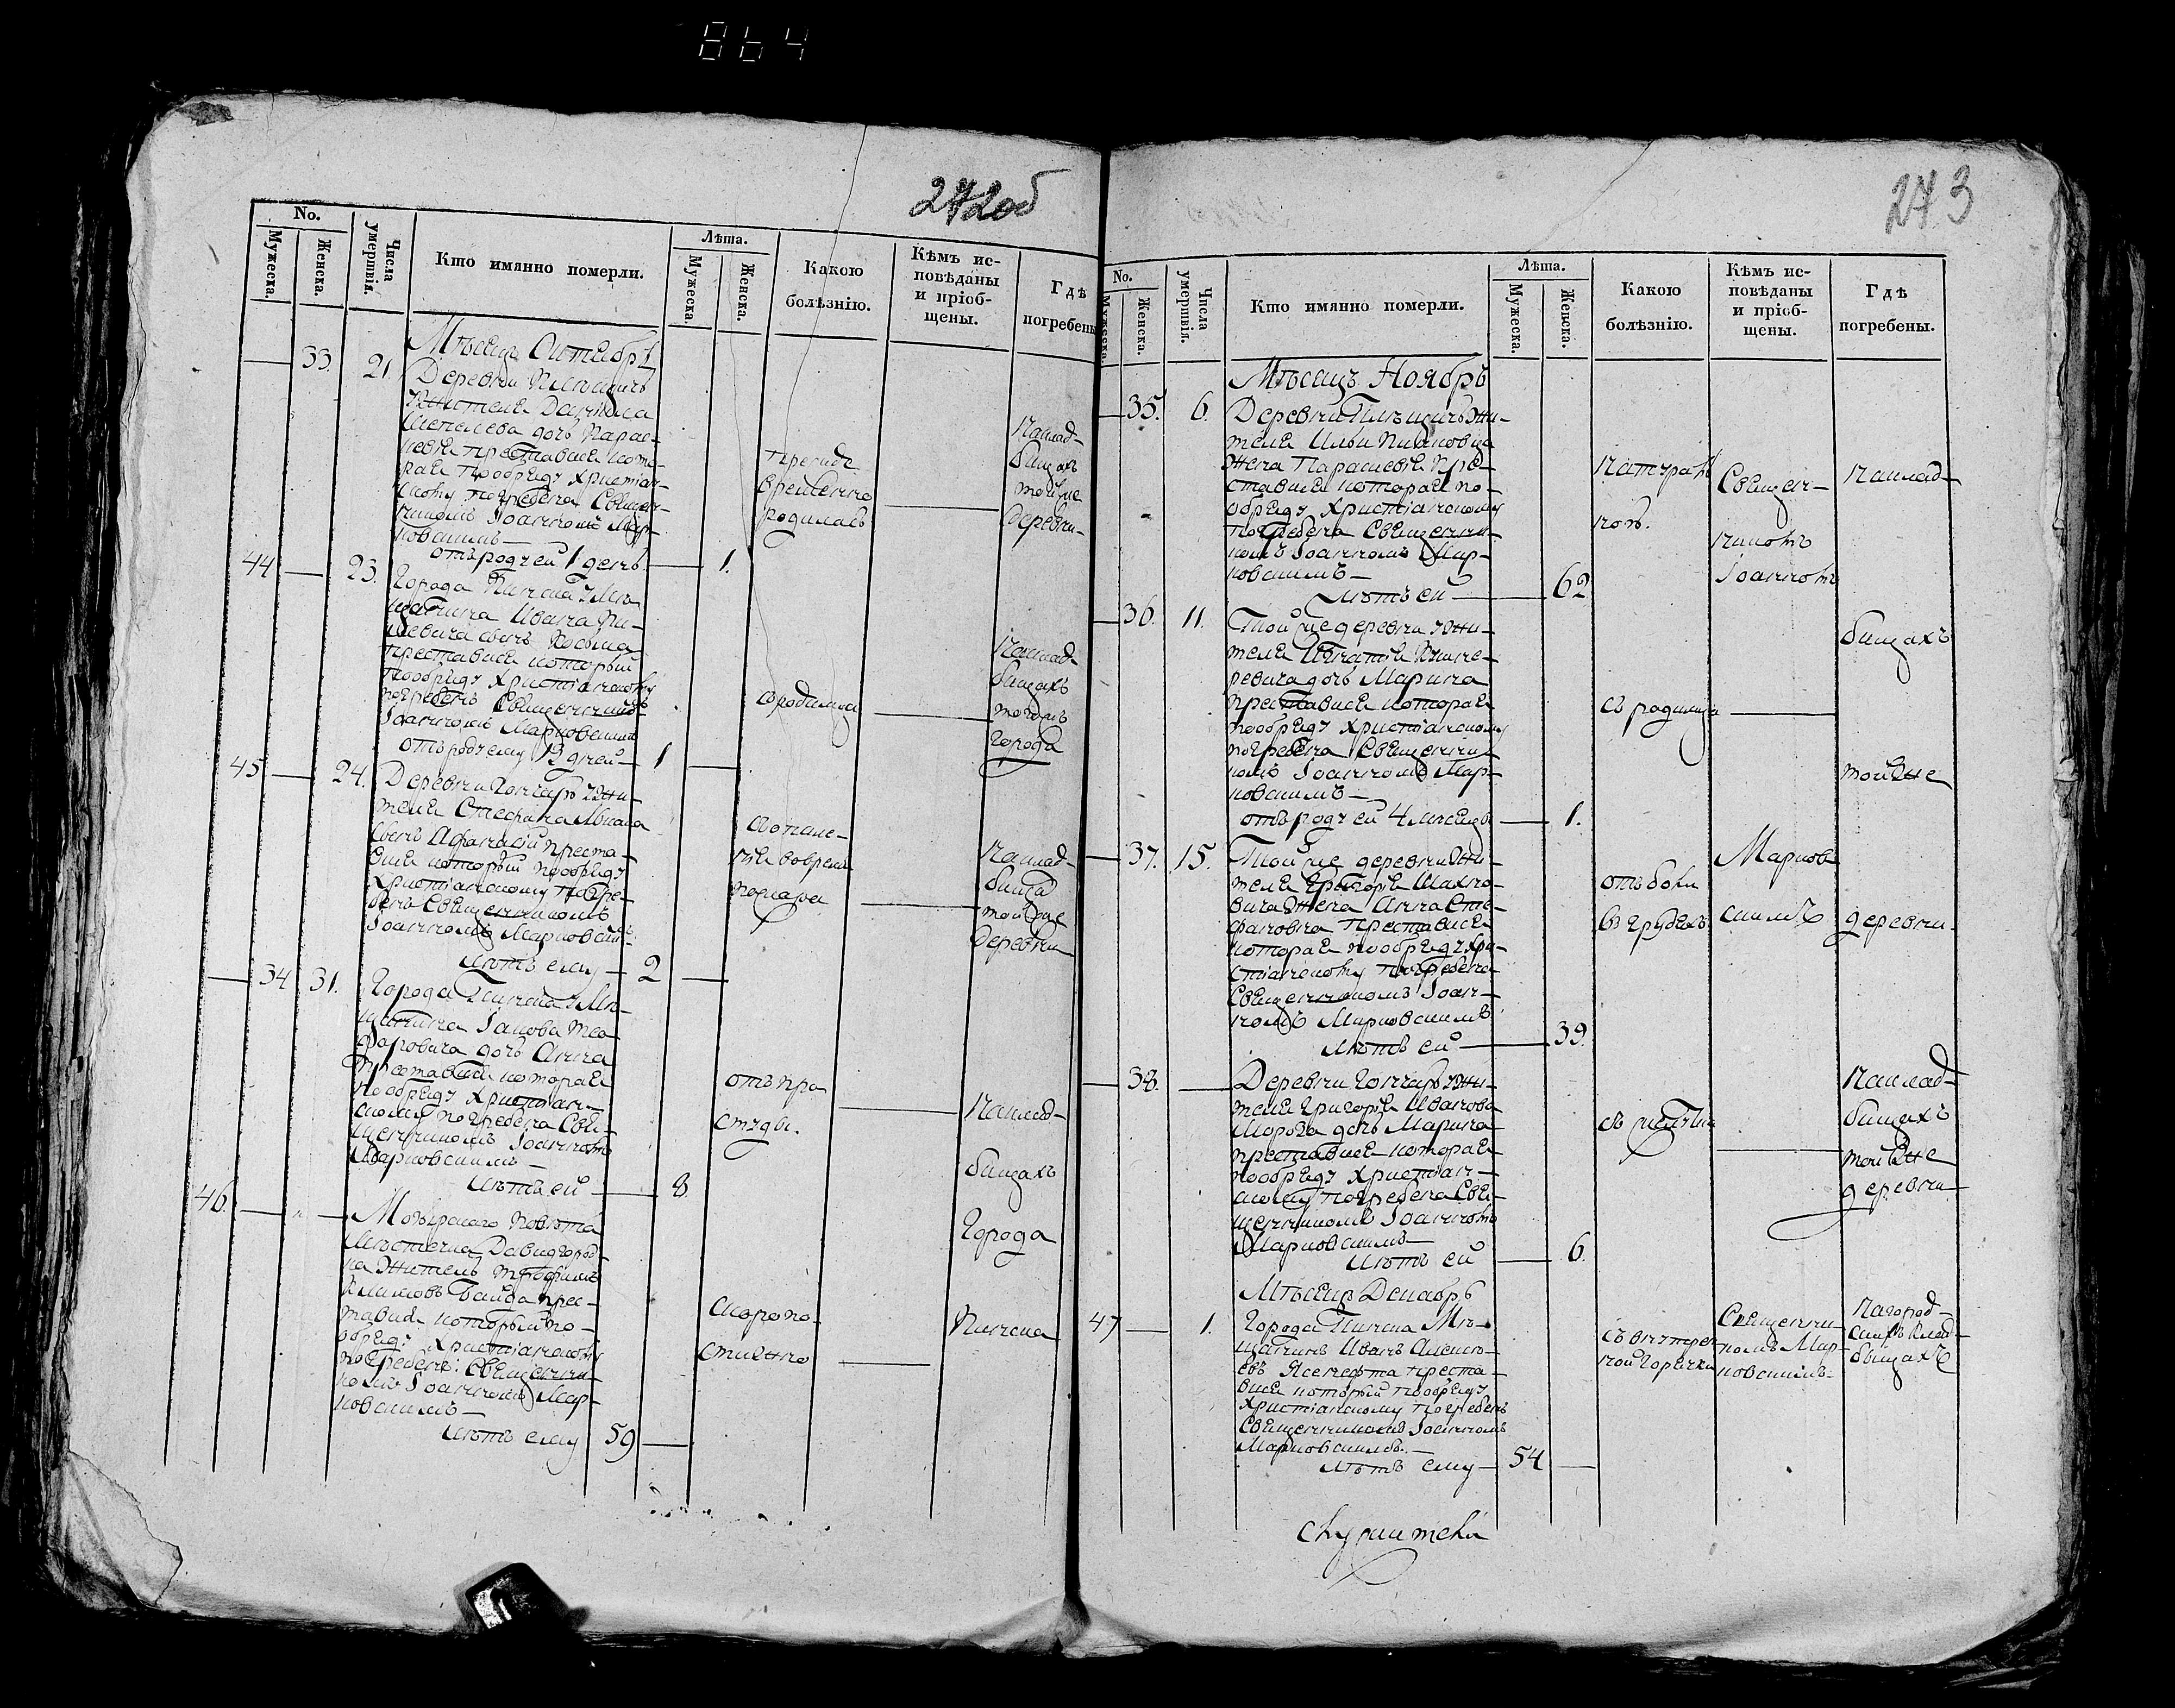 864
272об
No.
Мужеска.
Женска.
Числа умертвія.
Кто имянно померли.
Лѣта.
Мужеска.
Женска.
Какою болѣзнію.
Кѣмъ исповѣданы и пріобщены.
Гдѣ погребены
Мѣсяцъ Октябрь
33. 21.
Деревни
жителя Данила
дочь Парас-
кевія преставися кото-
рая пообряду христіан-
скому погребена Священ-
никомъ Іоанномъ Мар-
ковскимъ
отъ роду ей 1 день 1.
прежде
временно
родилась
наклад-
бищахъ
той же
деревни
44 23.
Города Пинска Мѣ-
щанина Ивана
сынъ
преставися который
пообряду христіанскому
погребенъ Священникомъ
Іоанномъ Марковским
отъ роду ему 12 дней 1
с родимца
наклад-
бищахъ
тогожъ
города
45 24.
Деревни Гончаръ жи-
теля Стефана
сынъ Афанасій преста-
вися который пообряду
христіанскому погре-
бенъ Священникомъ
Іоанномъ Марковски
лѣтъ ему 2
вовремя
пожара
наклад-
бища
той же
деревни
34 31.
Города Пинска Мѣ-
щанина Іакова
дочь Анна
преставися которая
пообряду христіан-
скому погребена Свя-
щенникомъ Іоанномъ
Марковскимъ
лѣтъ ей 8
отъ про
студы.
наклад-
бищахъ
города
Пинска
46.
Мозырскаго повѣта
Мѣстечка Давидгород-
ка житель Трофимъ
Климовъ прес-
тавися который по-
обряду христіанскому
погребенъ Священни-
комъ Іоанномъ Мар-
ковскимъ
лѣтъ ему 59
скоропо-
стижно
273
No.
Мужеска.
Женска.
Числа умертвія.
Кто имянно померли.
Лѣта.
Мужеска.
Женска.
Какою болѣзнію.
Кѣмъ исповѣданы и пріобщены.
Гдѣ погребены.
Мѣсяцъ Ноябрь
35. 6.
Деревни жи-
теля Ильи
жена Параскевія пре-
ставися которая по-
обряду христіанскому
погребена Священни-
комъ Іоанномъ Мар-
ковскимъ
лѣтъ ей 62
Священ-
никомъ
Іоанномъ
наклад-
36. 11.
Той же деревни жи-
теля Игнатія
дочь Марина
преставися которая
пообряду христіанскому
погребена Священни
комъ Іоанномъ Мар-
ковскимъ
отъ роду ей 4 мѣсяцъ 1.
съ родимца
бищахъ
той же
37. 15.
Той же деревни жи-
теля Григорія
жена Анна Сте-
фановна преставися
которая пообряду хри-
стіанскому погребена
Священникомъ Іоан-
номъ Марковскимъ
лѣтъ ей 39.
отъ боли
въ грудехъ
Марков
скимъ
деревни.
38.
Деревни Гончаръ жи-
теля Григорія Иванова
Мороза дочь Марина
преставися которая
пообряду христіан-
скому погребена Свя-
щенникомъ Іоанномъ
Марковскимъ
лѣтъ ей 6.
наклад-
бищахъ
той же
деревни
Мѣсяцъ Декабрь
47 1.
Города Пинска Мѣ-
щанинъ Иванъ Алексѣ-
евъ преста-
вися который пообряду
христіанскому погребенъ
Священникомъ Іоанномъ
Марковскимъ.
лѣтъ ему 54
съ внутрен
ной горячки
Священни-
комъ Мар-
ковскимъ
нагород-
скихъ клад-
бищахъ